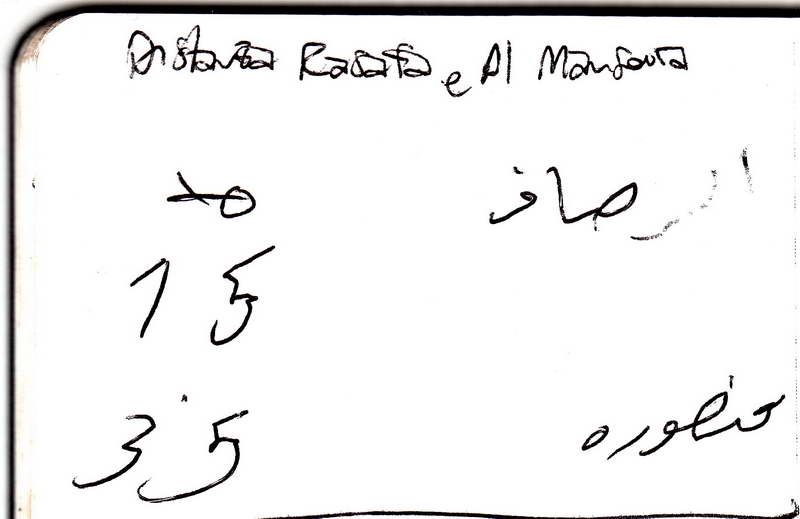 Distanza Rasafa e Al Mansoura
الرصافـ
15
35
منصوره